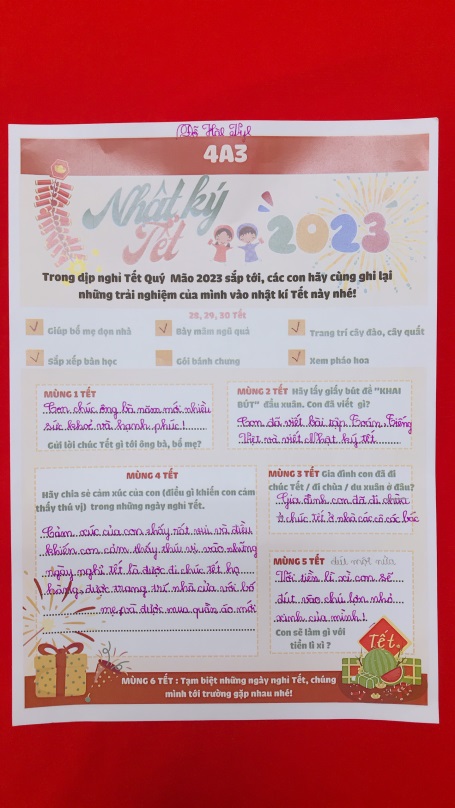 Đỗ Hà
4A3
Nhật ký
Tết 2023
Trong dịp nghỉ Tết Quý Mão 2023 sắp tới, các con hãy cùng ghi lại
những trải nghiệm của mình vào nhật kí Tết này nhé!
28, 29, 30 Tết
Giúp bố mẹ dọn nhà
Bày mâm ngũ quả
Trang trí cây đào, cây quất
Sắp xếp bàn học
Gói bánh chưng
Xem pháo hoa
MÙNG 1 TẾT
Con chúc ông bà năm mới nhiều
sức khoẻ và hạnh phúc!
Gửi lời chúc Tết gì tới ông bà, bố mẹ?
MÙNG 2 TẾT Hãy lấy giấy bút để "KHAI
BÚT" đầu xuân. Con đã viết gì?
Con đã viết bài tập Toán, Tiếng
Việt và viết nhật ký tết
MÙNG 4 TẾT
Hãy chia sẻ cảm xúc của con (điều gì khiến con cảm
thấy thú vị) trong những ngày nghỉ Tết.
Cảm xúc của con thấy rất vui và điều
khiến con cảm thấy thú vị vào những
ngày nghỉ tết là được đi chúc tết họ
hàng, được trang trí nhà cửa với bố
mẹ và được mua quần áo mới
MÙNG 3 TẾT Gia đình con đã đi
chúc Tết / đi chùa / du xuân ở đâu?
Gia đình con đã đi chùa
đi chúc tết ở nhà các cô các bác
MÙNG 5 TẾT
Với tiền lì xì con sẽ
đút vào chú lợn nhỏ
xinh của mình!
Con sẽ làm gì với
tiền lì xì ?
Tết
MÙNG 6 TẾT : Tạm biệt những ngày nghỉ Tết, chúng
mình tới trường gặp nhau nhé!